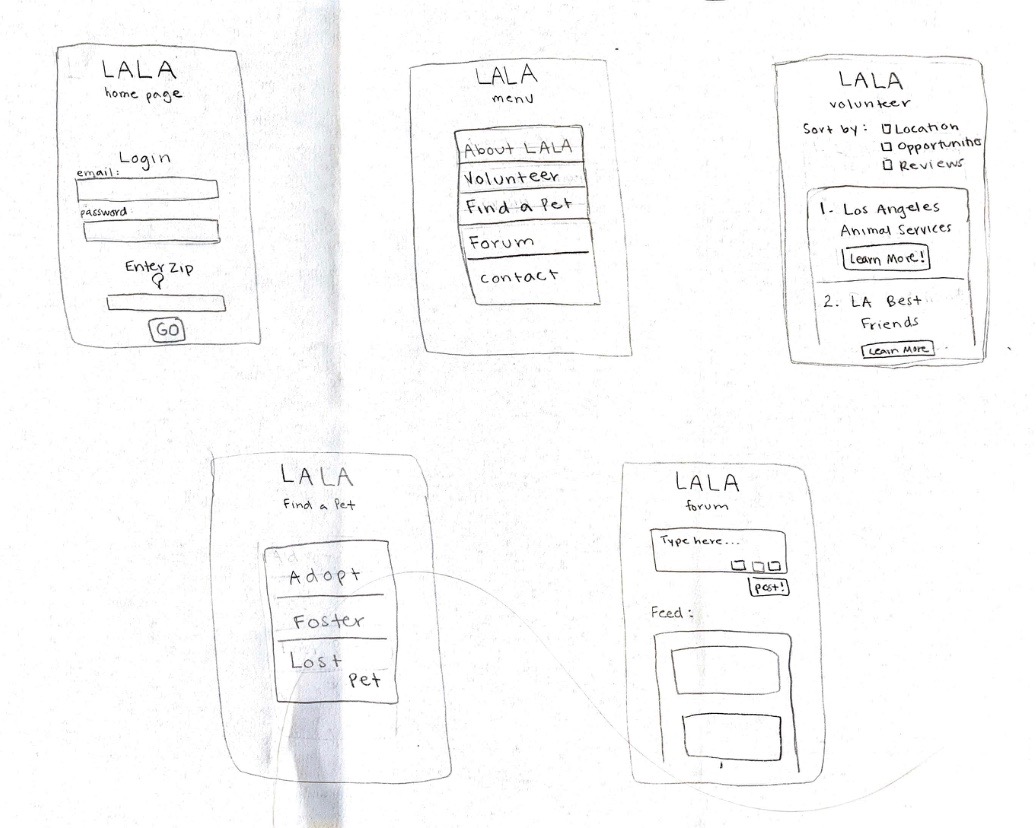 LALA
home page
Login
email:
password
Enter Zip
GO
LALA
menu
About LALA
Volunteer
Find a Pet
Forum
contact
LALA
volunteer
Sort by: Location
Opportunities
Reviews
1. Los Angeles
Animal Services
Learn More!
2. LA Best
Friends
Learn More
LALA
Find a Pet
Adopt
Foster
Lost
Pet
LALA
forum
Type here...
post!
Feed: